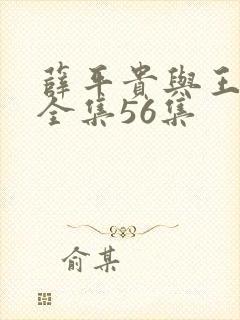 薛平貴與王
全集56集
俞某